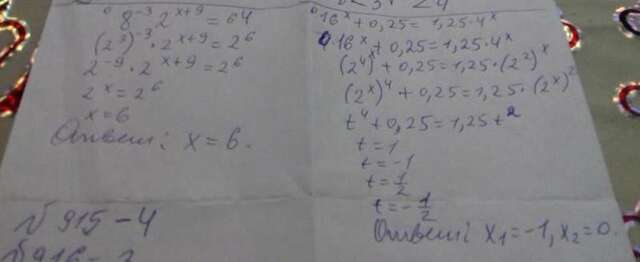 8⁻³ · 2ˣ⁺⁹ = 64
(2³)⁻³ · 2ˣ⁺⁹ = 2⁶
2⁻⁹ · 2ˣ⁺⁹ = 2⁶
2ˣ = 2⁶
x = 6
Ответ: x = 6.
№915-4
№916-
16ˣ + 0,25 = 1,25 · 4ˣ
16ˣ + 0,25 = 1,25 · 4ˣ
(2⁴)ˣ + 0,25 = 1,25 · (2²)ˣ
(2ˣ)⁴ + 0,25 = 1,25 · (2ˣ)²
t⁴ + 0,25 = 1,25t²
t = 1
t = -1
t = 1/2
t = -1/2
Ответ: x₁ = -1, x₂ = 0.